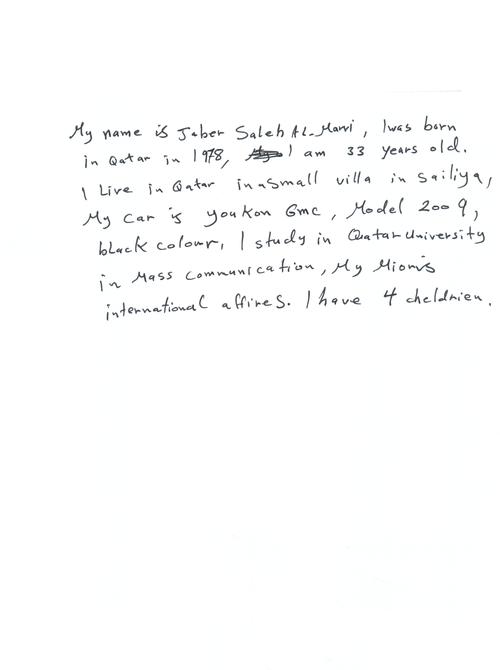 My name is Jaber Saleh AL-Marri, I was born
in Qatar in 1978, I am 33 years old.
I Live in Qatar in a small villa in sailiya,
My car is youkon Gmc, Model 2009,
black colour, I study in Qatar University
in Mass communication, My Mior is
international affires. I have 4 cheldrien.